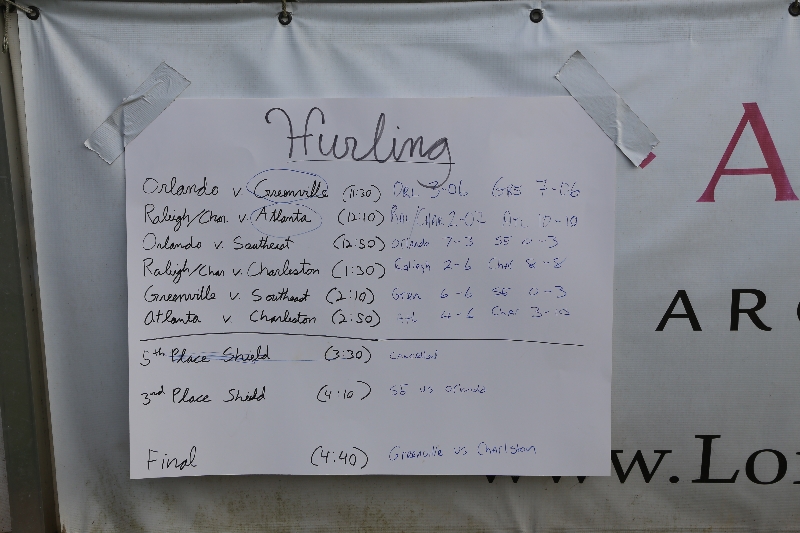 Hurling
Orlando v Greenville (11:30) ORL 3-06 GRE 7-06
Raleigh/Char. v. Atlanta (12:10) Ral/Char 2-02 10-10
Orlando v. Southeast (12:50) Orlando 7-3 SE -3
Raleigh/Char v. Charleston (1:30) Raleigh 2-6 Char 8-8
Greenville v. Southeast (2:10) Green 6-6 SE -3
Atlanta v. Charleston (2:50) Atl 4-6 Char 3-10
5th Place Shield (3:30) Cancelled
3rd Place Shield (4:10) SE vs Orlando
Final (4:40) Greenville vs Charlston
A
ARC
www.Lo